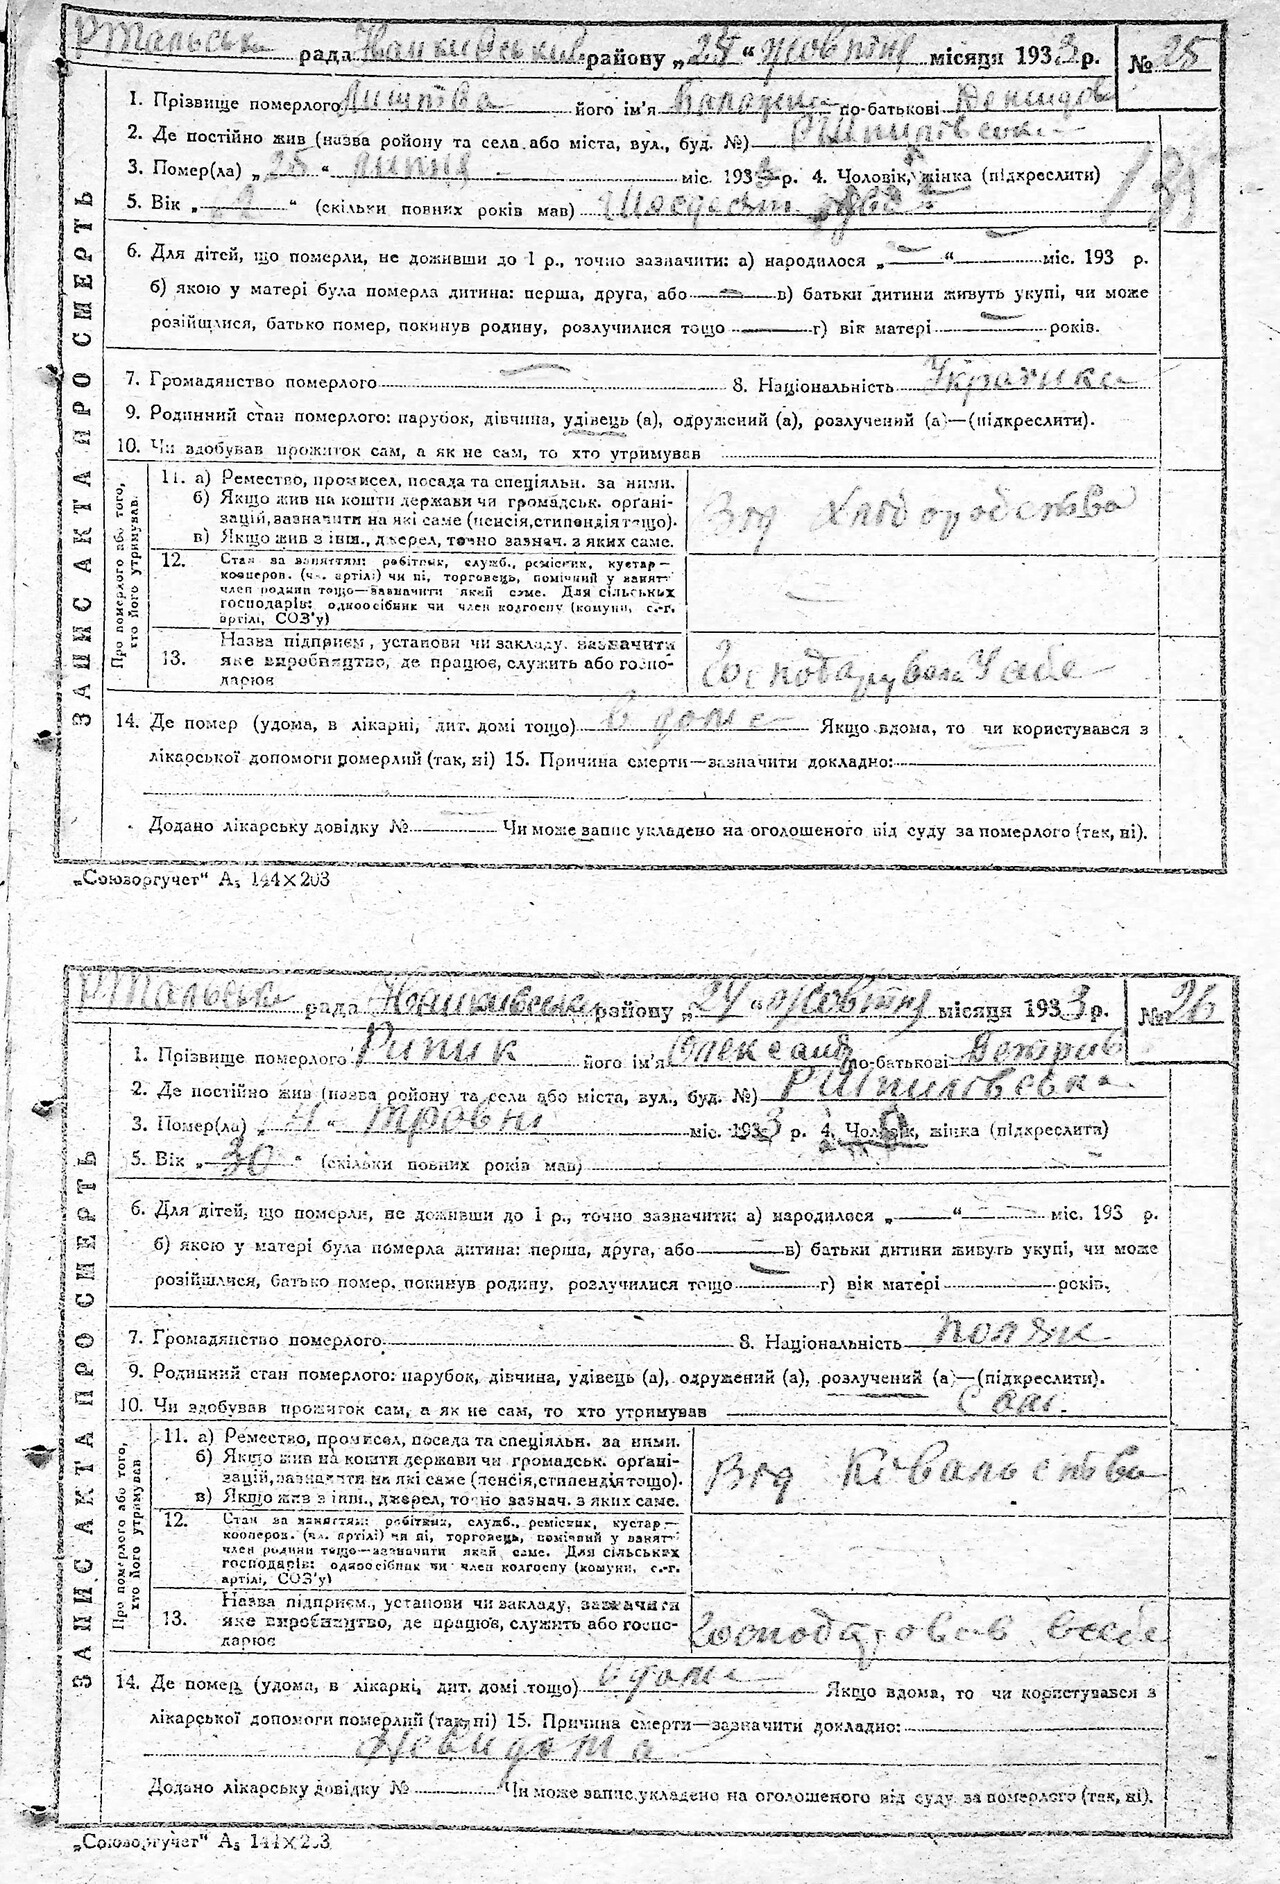 рада районy „25“ жовтня місяця 1933 р. № 25
1. Прізвище померлого Лиштва його ім'я по-батькові Демидов
2. Де постійно жив (назва ройону та села або міста, вул., буд. №)
3. Помер(ла) „25“ липня міс. 1933 р. 4. Чоловік, жінка (підкреслити)
5. Вік „ “ (скільки повних років мав) Шосдесят
6. Для дітей, що померли, не доживши до 1 р., точно зазначити: а) народилося „ “ міс. 193 р.
б) якою у матері була померла дитина: перша, друга, або в) батьки дитини живуть укупі, чи може
розійшлися, батько помер, покинув родину, розлучилися тощо г) вік матері років.
7. Громадянство померлого 8. Національність Українка
9. Родинний стан померлого: парубок, дівчина, удівець (а), одружений (а), розлучений (а)—(підкреслити).
10. Чи здобував прожиток сам, а як не сам, то хто утримував
ЗАПИС АКТА ПРО СМЕРТЬ
Про померлого або того, хто його утримував.
11. а) Ремество, промисел, посада та спеціяльн. за ними.
б) Якщо жив на кошти держави чи громадськ. орґані-
зацій, зазначити на які саме (пенсія, стипендія тощо).
в) Якщо жив з інш., джерел, точно зазнач. з яких саме.
Від Хлібородства
12. Стан за заняттям: робітник, служб., ремісник, кустар—
кооперов. (чл. артілі) чи ні, торговець, помічний у занятт
член родини тощо—зазначити який саме. Для сільських
господарів: одноосібник чи член колгоспу (комуни, с.-г.
артілі, СОЗ'у)
13. Назва підприєм., установи чи закладу, зазначити
яке виробництво, де працює, служить або госпо-
дарює
Господарувала У себе
14. Де помер (удома, в лікарні, дит. домі тощо) в доме Якщо вдома, то чи користувався з
лікарської допомоги померлий (так, ні) 15. Причина смерти—зазначити докладно:
Додано лікарську довідку № Чи може запис укладено на оголошеного від суду за померлого (так, ні).
„Союзоргучет“ А₅ 144×203
рада району „24“ жовтня місяця 1933 р. № 26
1. Прізвище померлого Рипик його ім'я Олександр по-батькові Петров
2. Де постійно жив (назва ройону та села або міста, вул., буд. №)
3. Помер(ла) „ “ міс. 1933 р. 4. Чоловік, жінка (підкреслити)
5. Вік „30“ (скільки повних років мав)
6. Для дітей, що померли, не доживши до 1 р., точно зазначити: а) народилося „ “ міс. 193 р.
б) якою у матері була померла дитина: перша, друга, або в) батьки дитини живуть укупі, чи може
розійшлися, батько помер, покинув родину, розлучилися тощо г) вік матері років.
7. Громадянство померлого 8. Національність поляк
9. Родинний стан померлого: парубок, дівчина, удівець (а), одружений (а), розлучений (а)—(підкреслити).
10. Чи здобував прожиток сам, а як не сам, то хто утримував Сам.
ЗАПИС АКТА ПРО СМЕРТЬ
Про померлого або того, хто його утримував
11. а) Ремество, промисел, посада та спеціяльн. за ними.
б) Якщо жив на кошти держави чи громадськ. орґані-
зацій, зазначити на які саме (пенсія, стипендія тощо).
в) Якщо жив з інш., джерел, точно зазнач. з яких саме.
Від Ковальства
12. Стан за заняттям: робітник, служб., ремісник, кустар—
кооперов. (чл. артілі) чи ні, торговець, помічний у занятт
член родини тощо—зазначити який саме. Для сільських
господарів: одноосібник чи член колгоспу (комуни, с.-г.
артілі, СОЗ'у)
13. Назва підприєм., установи чи закладу, зазначити
яке виробництво, де працює, служить або госпо-
дарює
Господарював всебе
14. Де помер (удома, в лікарні, дит. домі тощо) Якщо вдома, то чи користувався з
лікарської допомоги померлий (так, ні) 15. Причина смерти—зазначити докладно:
Невидома
Додано лікарську довідку № Чи може запис укладено на оголошеного від суду за померлого (так, ні).
„Союзоргучет“ А₅ 144×203